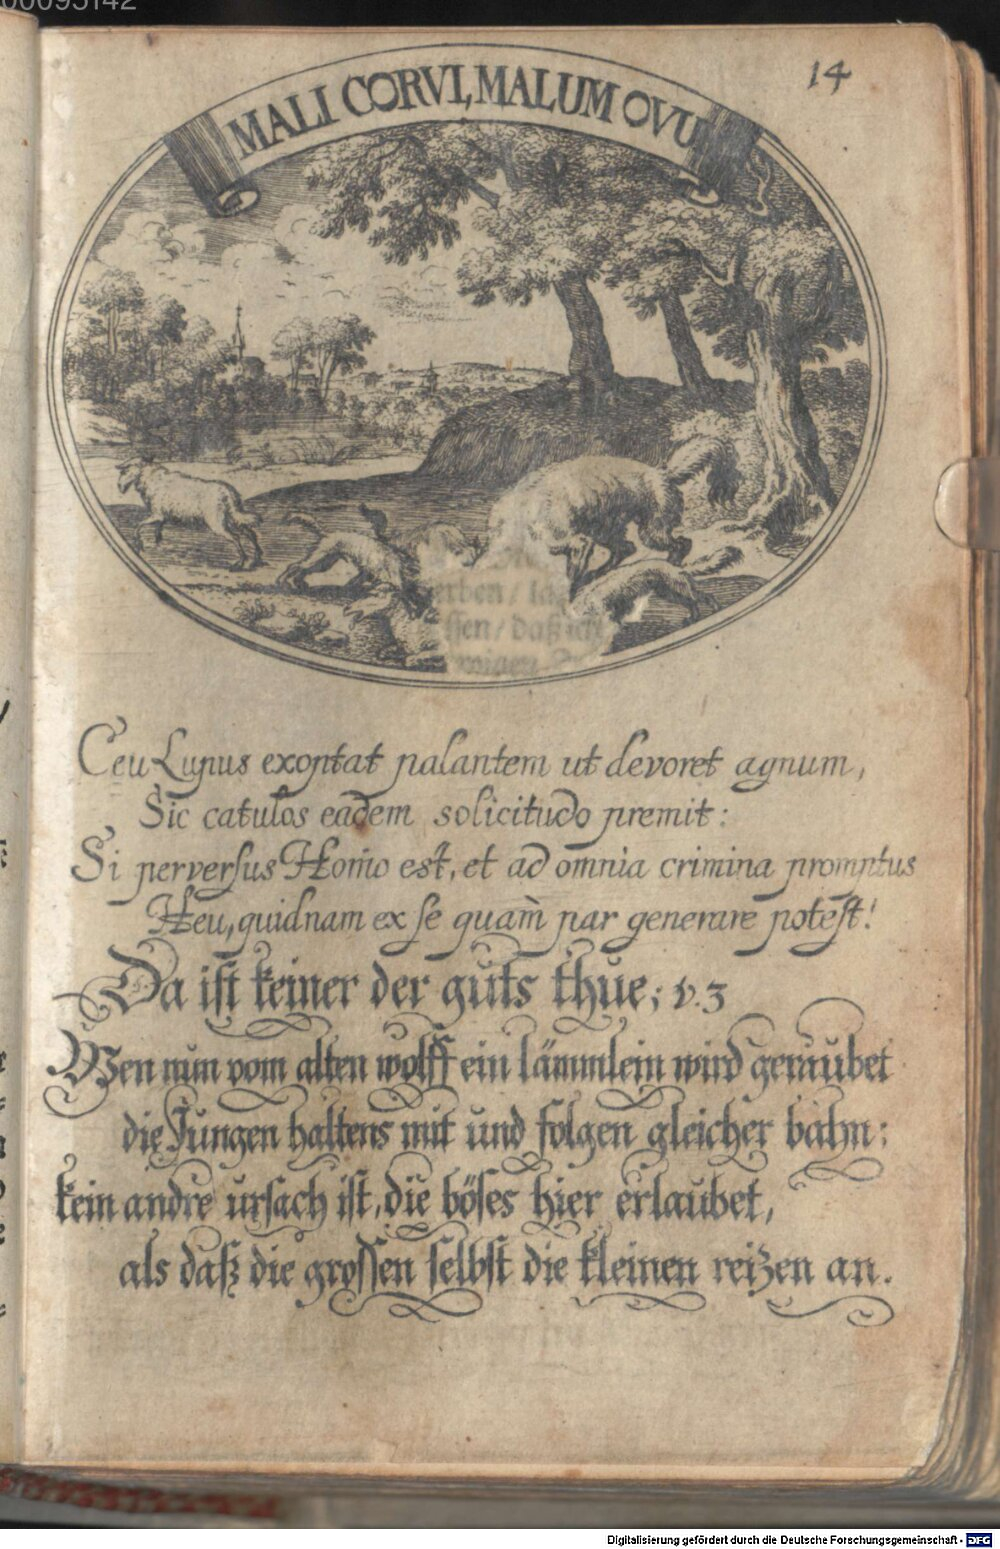 00095142
14
MALI CORVI, MALUM OVU
erben / laß
ssen / daß ich
Ceu Lupus exoptat palantem ut devoret agnum,
Sic catulos eadem solicitudo premit:
Si perversus Homo est, et ad omnia crimina promptus
Heu, quidnam ex se quam par generare potest!
Da ist keiner der guts thue; v. 3
Wen nun vom alten wolff ein lämmlein wird geraubet
die Jungen haltens mit und folgen gleicher bahn:
kein andre ursach ist, die böses hier erlaubet,
als daß die grossen selbst die kleinen reitzen an.
Digitalisierung gefördert durch die Deutsche Forschungsgemeinschaft - DFG